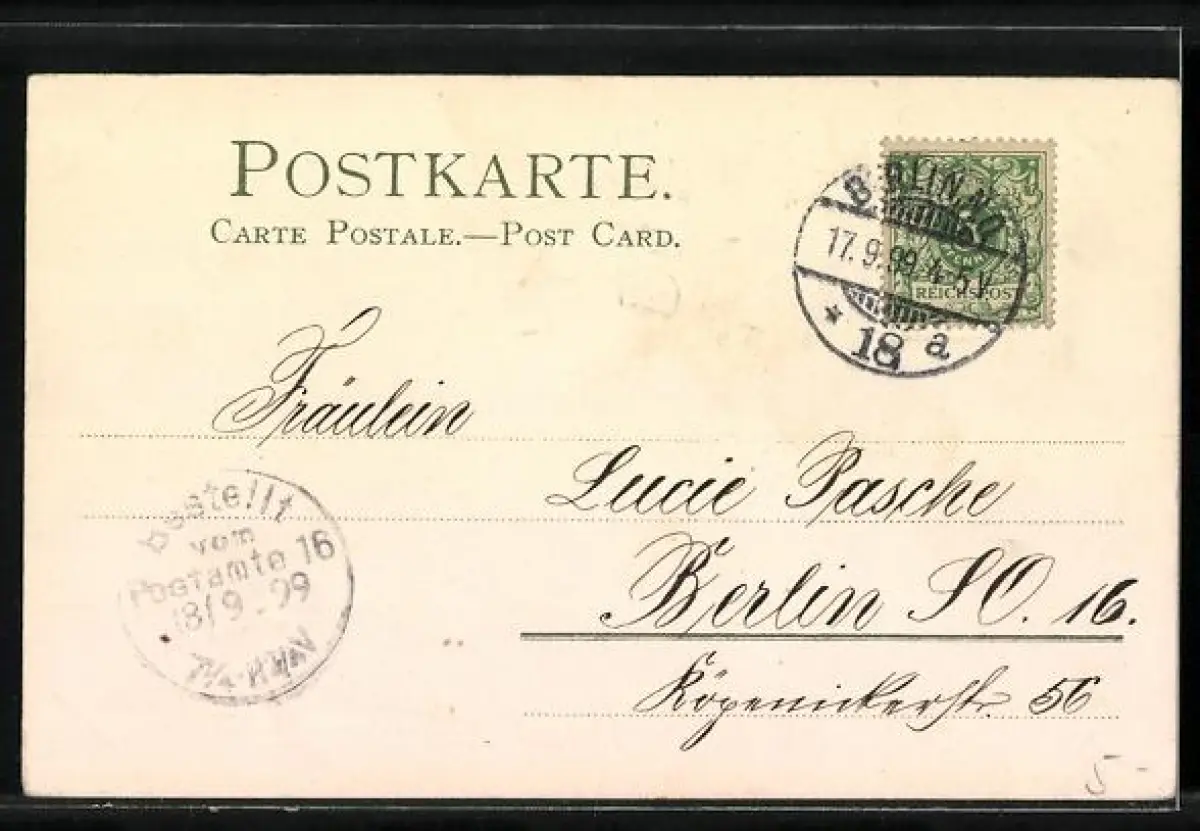 POSTKARTE.
CARTE POSTALE.—POST CARD.
BERLIN.N.
17.9.99 4-5V
* 18 a
REICHSPOST
Fräulein
Lucie Pasche
Berlin SO. 16.
Köpenickerstr. 56
bestellt
vom
Postamte 16
18/9.99
5-